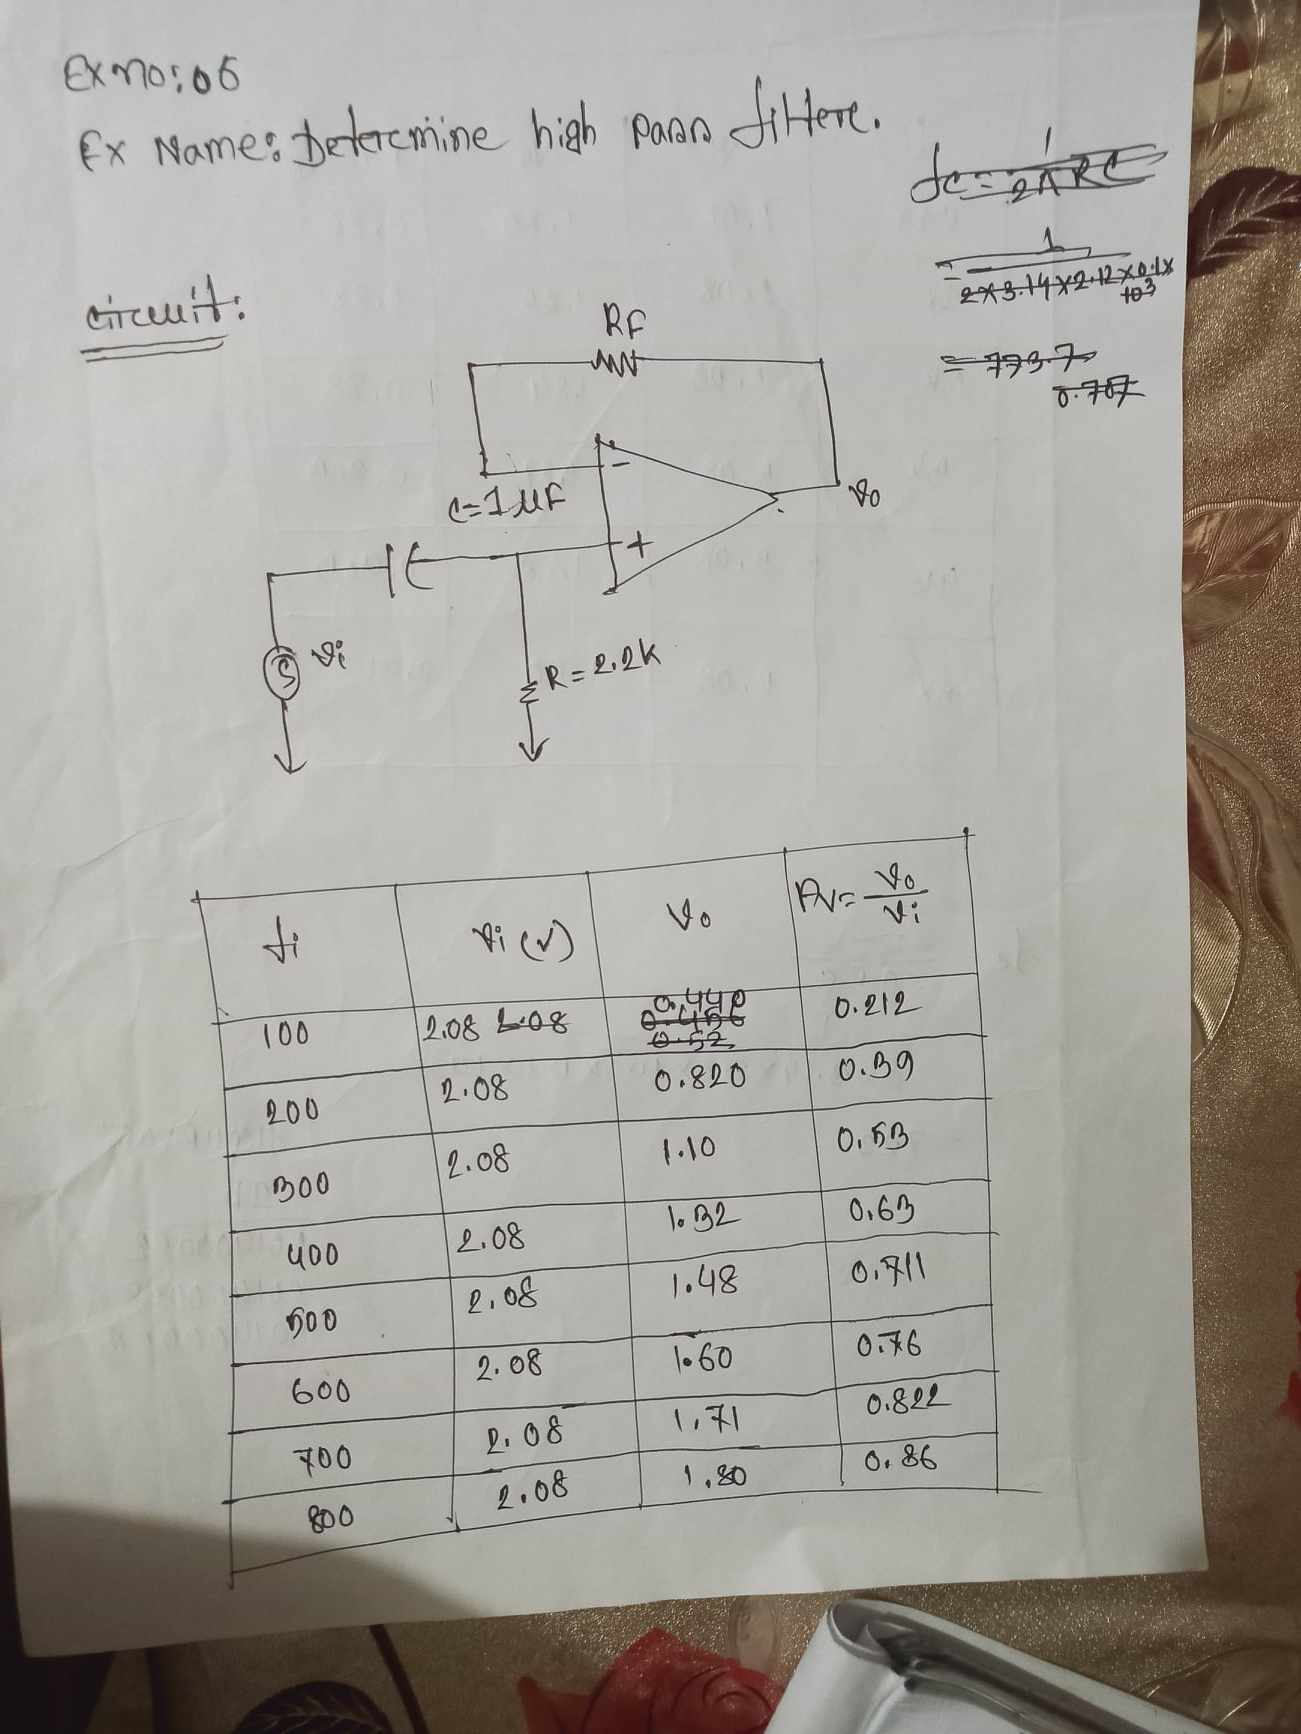 Ex no: 06
Ex Name: Determine high pass filtere.
fc = 1 / 2πRC
= 1 / 2×3.14×2.12×0.1×10³
= 773.7
0.707
circuit:
RF
−
C=1µF
vo
+
vi
S
R=2.2K
fi vi (v) vo Av= vo/vi
100 2.08 2.08 0.440 0.456 0.52 0.212
200 2.08 0.820 0.39
300 2.08 1.10 0.53
400 2.08 1.32 0.63
500 2.08 1.48 0.711
600 2.08 1.60 0.76
700 2.08 1.71 0.822
800 2.08 1.80 0.86